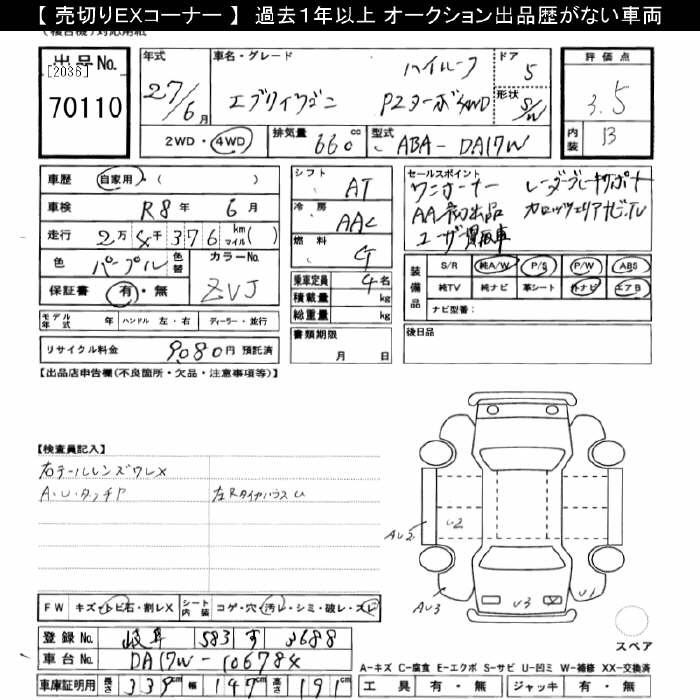 【 売切りEXコーナー 】 過去1年以上 オークション出品歴がない車両
(複合機)対応用紙
出品No. [2036] 70110
年式 27/6月
車名・グレード エブリイワゴン ハイルーフ PZターボ 4WD
ドア 5
形状 S/W
評価点 3.5
内装 B
2WD・4WD
排気量 660 cc
型式 ABA-DA17W
車歴 自家用・( )
車検 R8年 6月
走行 2万4千376 km マイル( )
色 パープル 色替
カラーNo. ZVJ
保証書 有・無
モデル年式 年 ハンドル 左・右 ディーラー・並行
リサイクル料金 9080円 預託済
シフト AT
冷房 AAC
燃料 G
乗車定員 4名
積載量 kg
総重量 kg
書類期限 月 日
セールスポイント
ワンオーナー レーダーブレーキサポート
AA初出品 カロッツェリアナビ.TV
ユーザー買取車
装備品
S/R 純A/W P/S P/W ABS
純TV 純ナビ 革シート 外ナビ エアB
ナビ型番:
後日品
【出品店申告欄(不良箇所・欠品・注意事項等)】
【検査員記入】
右テールレンズワレX
A・U・タッチア
左Rタイヤハウス U
AU2 U2
AU3 U3 U1
スペア
FW キズ・トビ石・割レX シート内装 コゲ・穴・汚レ・シミ・破レ・スレ
登録No. 岐阜 583 す 3688
車台No. DA17W-106784
車庫証明用 長さ 339cm 幅 147cm 高さ 191cm
A-キズ C-腐食 E-エクボ S-サビ U-凹ミ W-補修 XX-交換済
工具 有・無 ジャッキ 有・無